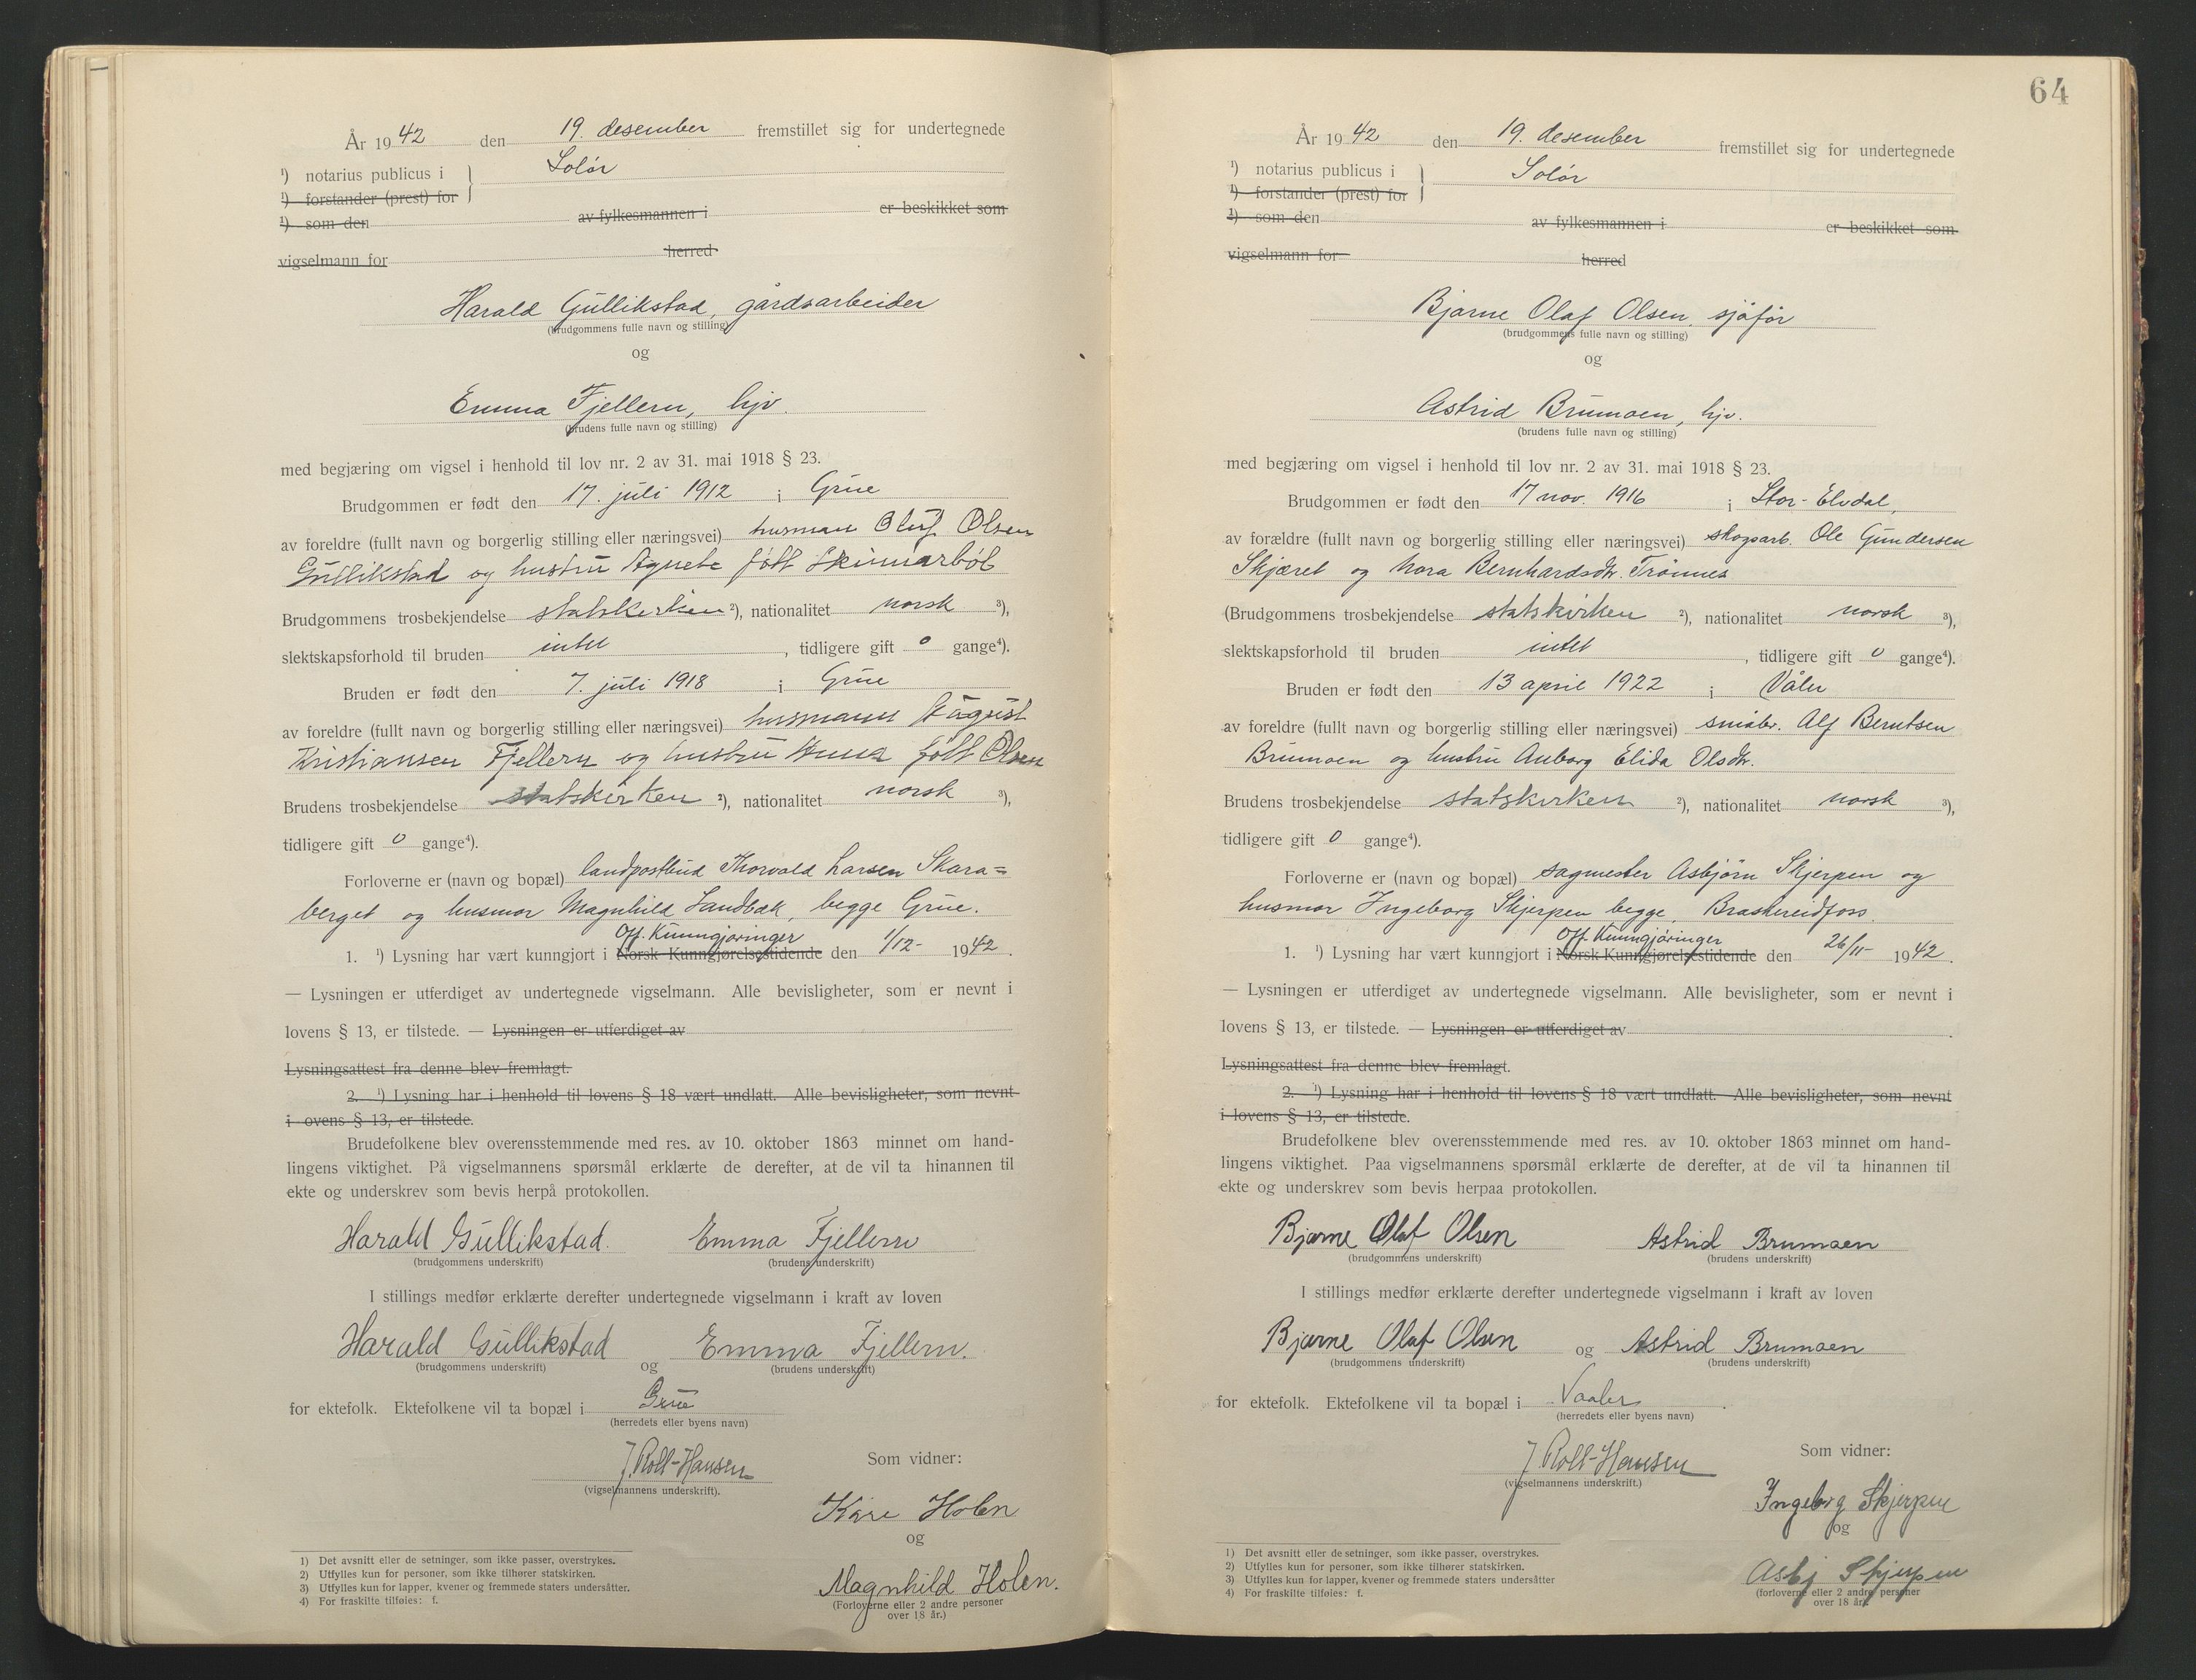 År 1942 den 19. desember fremstillet sig for undertegnede
¹) notarius publicus i Solør
¹) forstander (prest) for
¹) som den av fylkesmannen i er beskikket som
vigselmann for herred
Harald Gullikstad, gårdsarbeider
(brudgommens fulle navn og stilling)
og
Emma Fjellern, hjv.
(brudens fulle navn og stilling)
med begjæring om vigsel i henhold til lov nr. 2 av 31. mai 1918 § 23.
Brudgommen er født den 17. juli 1912 i Grue
av foreldre (fullt navn og borgerlig stilling eller næringsvei) husman Oluf Olsen
Gullikstad og hustru Agnete født Skinnarbøl
Brudgommens trosbekjendelse statskerken ²), nationalitet norsk ³),
slektskapsforhold til bruden intet, tidligere gift 0 gange⁴).
Bruden er født den 7. juli 1918 i Grue
av foreldre (fullt navn og borgerlig stilling eller næringsvei) husmann August
Kristiansen Fjellern og hustru Anna født Olsen
Brudens trosbekjendelse statskirken ²), nationalitet norsk ³),
tidligere gift 0 gange⁴).
Forloverne er (navn og bopæl) landpostbud Thorvald Larsen Skara=
berget og husmor Magnhild Sandbak, begge Grue.
Off. Kunngjøringer
1. ¹) Lysning har vært kunngjort i Norsk Kunngjørelsestidende den 1/12- 1942.
— Lysningen er utferdiget av undertegnede vigselmann. Alle bevisligheter, som er nevnt i
lovens § 13, er tilstede. — Lysningen er utferdiget av
Lysningsattest fra denne blev fremlagt.
2. ¹) Lysning har i henhold til lovens § 18 vært undlatt. Alle bevisligheter, som nevnt
i ovens § 13, er tilstede.
Brudefolkene blev overensstemmende med res. av 10. oktober 1863 minnet om hand-
lingens viktighet. På vigselmannens spørsmål erklærte de derefter, at de vil ta hinannen til
ekte og underskrev som bevis herpå protokollen.
Harald Gullikstad. Emma Fjellern
(brudgommens underskrift) (brudens underskrift)
I stillings medfør erklærte derefter undertegnede vigselmann i kraft av loven
Harald Gullikstad og Emma Fjellern.
(brudgommens underskrift) (brudens underskrift)
for ektefolk. Ektefolkene vil ta bopæl i Grue
(herredets eller byens navn)
Som vidner:
J. Roll-Hansen
(vigselmannens underskrift).
Kåre Holen
og
Magnhild Holen.
(Forloverne eller 2 andre personer
over 18 år.)
1) Det avsnitt eller de setninger, som ikke passer, overstrykes.
2) Utfylles kun for personer, som ikke tilhører statskirken.
3) Utfylles kun for lapper, kvener og fremmede staters undersåtter.
4) For fraskilte tilføies: f.
64
År 1942 den 19. desember fremstillet sig for undertegnede
¹) notarius publicus i Solør
¹) forstander (prest) for
¹) som den av fylkesmannen i er beskikket som
vigselmann for herred
Bjarne Olaf Olsen, sjåfør
(brudgommens fulle navn og stilling)
og
Astrid Brumoen, hjv.
(brudens fulle navn og stilling)
med begjæring om vigsel i henhold til lov nr. 2 av 31. mai 1918 § 23.
Brudgommen er født den 17 nov. 1916 i Stor-Elvdal,
av forældre (fullt navn og borgerlig stilling eller næringsvei) skogsarb. Ole Gundersen
Skjæret og Nora Bernhardsdtr. Trønnes
(Brudgommens trosbekjendelse statskirken ²), nationalitet norsk ³),
slektskapsforhold til bruden intet, tidligere gift 0 gange⁴).
Bruden er født den 13 april 1922 i Våler
av foreldre (fullt navn og borgerlig stilling eller næringsvei) småbr. Alf Berntsen
Brumoen og hustru Anborg Elida Olsdtr.
Brudens trosbekjendelse statskirken ²), nationalitet norsk ³),
tidligere gift 0 gange⁴).
Forloverne er (navn og bopæl) sagmester Asbjørn Skjerpen og
husmor Ingeborg Skjerpen begge, Braskereidfoss.
Off. Kunngjøringer
1. ¹) Lysning har vært kunngjort i Norsk Kunngjørelsestidende den 26/11- 1942.
— Lysningen er utferdiget av undertegnede vigselmann. Alle bevisligheter, som er nevnt i
lovens § 13, er tilstede. — Lysningen er utferdiget av
Lysningsattest fra denne blev fremlagt.
2. ¹) Lysning har i henhold til lovens § 18 vært undlatt. Alle bevisligheter, som nevnt
i lovens § 13, er tilstede.
Brudefolkene blev overensstemmende med res. av 10. oktober 1863 minnet om hand-
lingens viktighet. Paa vigselmannens spørsmål erklærte de derefter, at de vil ta hinannen til
ekte og underskrev som bevis herpaa protokollen.
Bjarne Olaf Olsen Astrid Brumoen
(brudgommens underskrift) (brudens underskrift)
I stillings medfør erklærte derefter undertegnede vigselmann i kraft av loven
Bjarne Olaf Olsen og Astrid Brumoen
(brudgommens underskrift) (brudens underskrift)
for ektefolk. Ektefolkene vil ta bopæl i Vaaler.
(herredets eller byens navn)
Som vidner:
J. Roll-Hansen
(vigselmannens underskrift.)
Ingeborg Skjerpen
og
Asbj Skjerpen
(forloverne eller 2 andre personer
over 18 år.)
1) Det avsnitt eller de setninger, som ikke passer, overstrykes.
2) Utfylles kun for personer, som ikke tilhører statskirken.
3) Utfylles kun for lapper, kvener og fremmede staters undersåtter
4) For fraskilte tilføies: f.